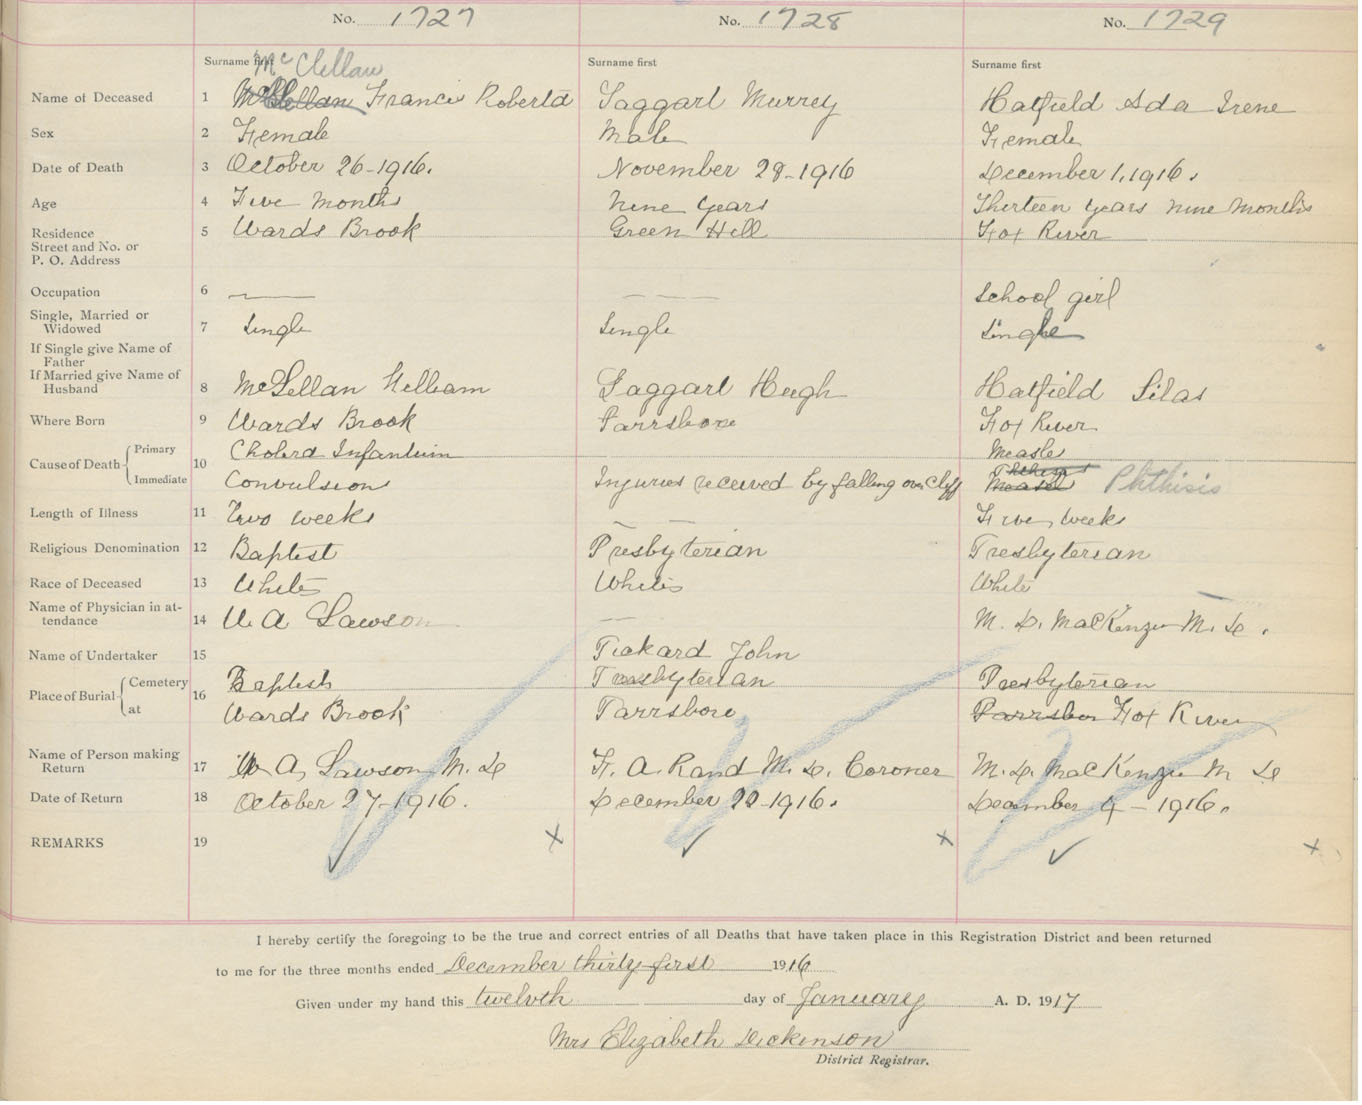 No. 1727 No. 1728 No. 1729
Surname first Surname first Surname first
McClellan
Name of Deceased 1 McLellan Francis Roberta Taggart Murrey Hatfield Ada Irene
Sex 2 Female Male Female
Date of Death 3 October 26-1916. November 28-1916 December 1, 1916.
Age 4 Five Months Nine years Thirteen years nine months
Residence 5 Wards Brook Green Hill Fox River
Street and No. or
P. O. Address
Occupation 6 — — — — School girl
Single, Married or
Widowed 7 Single Single Single
If Single give Name of
Father
If Married give Name of
Husband 8 McLellan William Taggart Hugh Hatfield Silas
Where Born 9 Wards Brook Parrsboro Fox River
Cause of Death 10 Primary Cholera Infantum Measles
Immediate Convulsions Injuries received by falling over Cliff Phthisis Measels Phthisis
Length of Illness 11 Two weeks — — Five weeks
Religious Denomination 12 Baptist Presbyterian Presbyterian
Race of Deceased 13 White White White
Name of Physician in at-
tendance 14 W. A Lawson — M. D. MacKenzie M. D.
Name of Undertaker 15 Pickard John
Place of Burial 16 Cemetery Baptist Presbyterian Presbyterian
at Wards Brook Parrsboro Parrsboro Fox River
Name of Person making
Return 17 W A, Lawson M. D F. A. Rand M. D. Coroner M. D. MacKenzie M D
Date of Return 18 October 27-1916. December 20-1916. December 4-1916.
REMARKS 19
I hereby certify the foregoing to be the true and correct entries of all Deaths that have taken place in this Registration District and been returned
to me for the three months ended December thirty-first 1916
Given under my hand this twelvth day of January A. D. 1917
Mrs Elizabeth Dickinson
District Registrar.